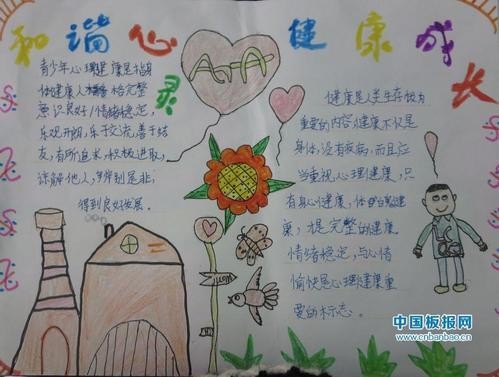 和谐心灵
健康成长
A+A
青少年心理健康是指身
体健康人格完整
意识良好/情绪稳定,
乐观开朗,乐于交流,善于结
友,有所追求,积极进取,
谅解他人,明辨是非,
得到良好发展。
健康是人类生存极为
重要的内容,健康不仅是
身体没有疾病,而且应
当重视心理健康,只
有身心健康,体
康,才是完整的健康。
情绪稳定,与心情
愉快是心理健康重
要的标志。
中国板报网
www.cnbanbao.cn